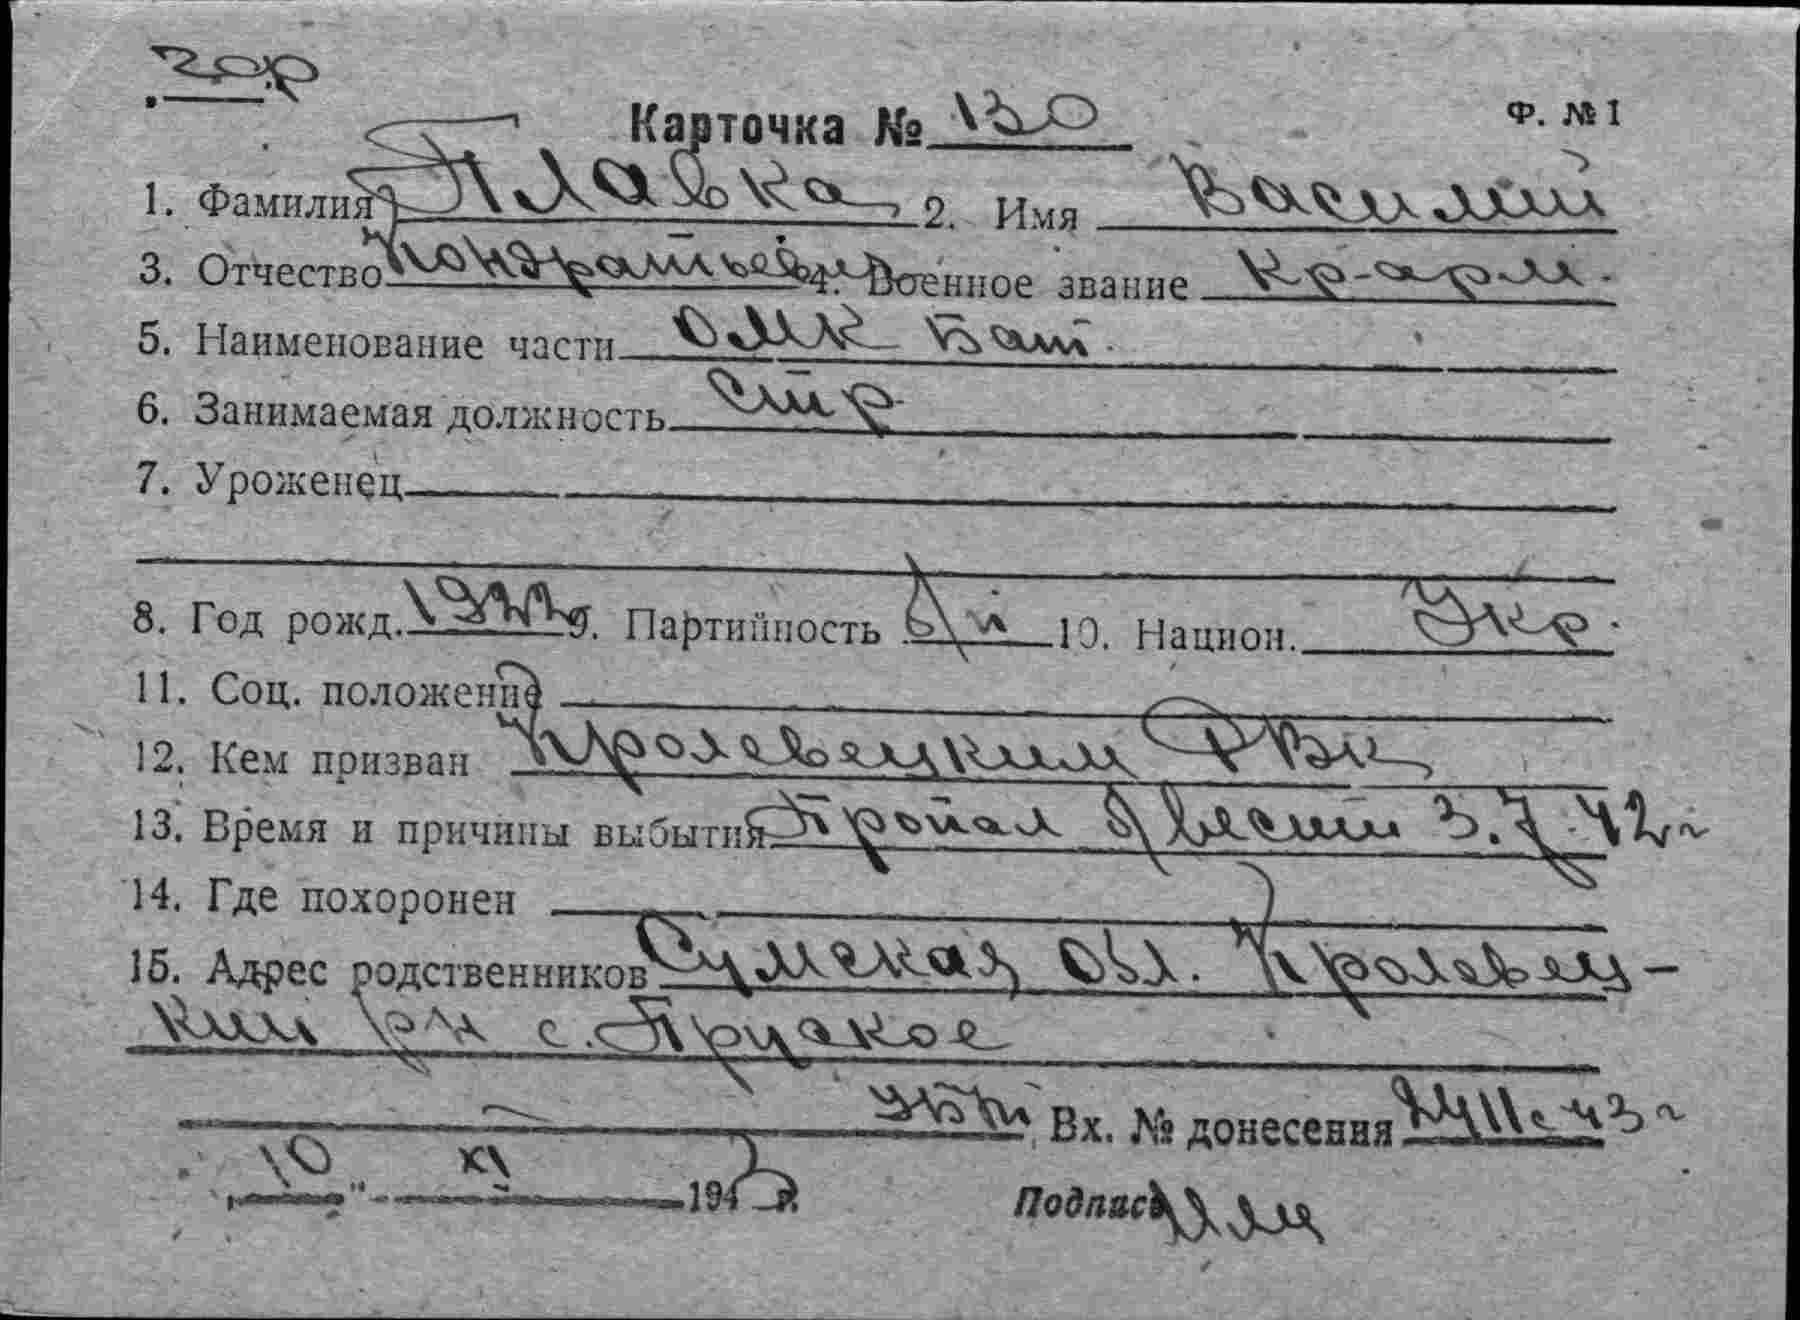 гор
Карточка № 130 Ф. № 1
1. Фамилия Плавка 2. Имя Василий
3. Отчество Кондратьевич 4. Военное звание кр-арм.
5. Наименование части бат.
6. Занимаемая должность стр
7. Уроженец
8. Год рожд. 1922 9. Партийность б/п 10. Национ. Укр.
11. Соц. положение
12. Кем призван Кролевецким РВК
13. Время и причины выбытия Пропал б/вести 3.7.42 г
14. Где похоронен
15. Адрес родственников Сумская обл. Кролевец-
кий р-н с.
Вх. № донесения
„10" XI 1943 г.
Подпись